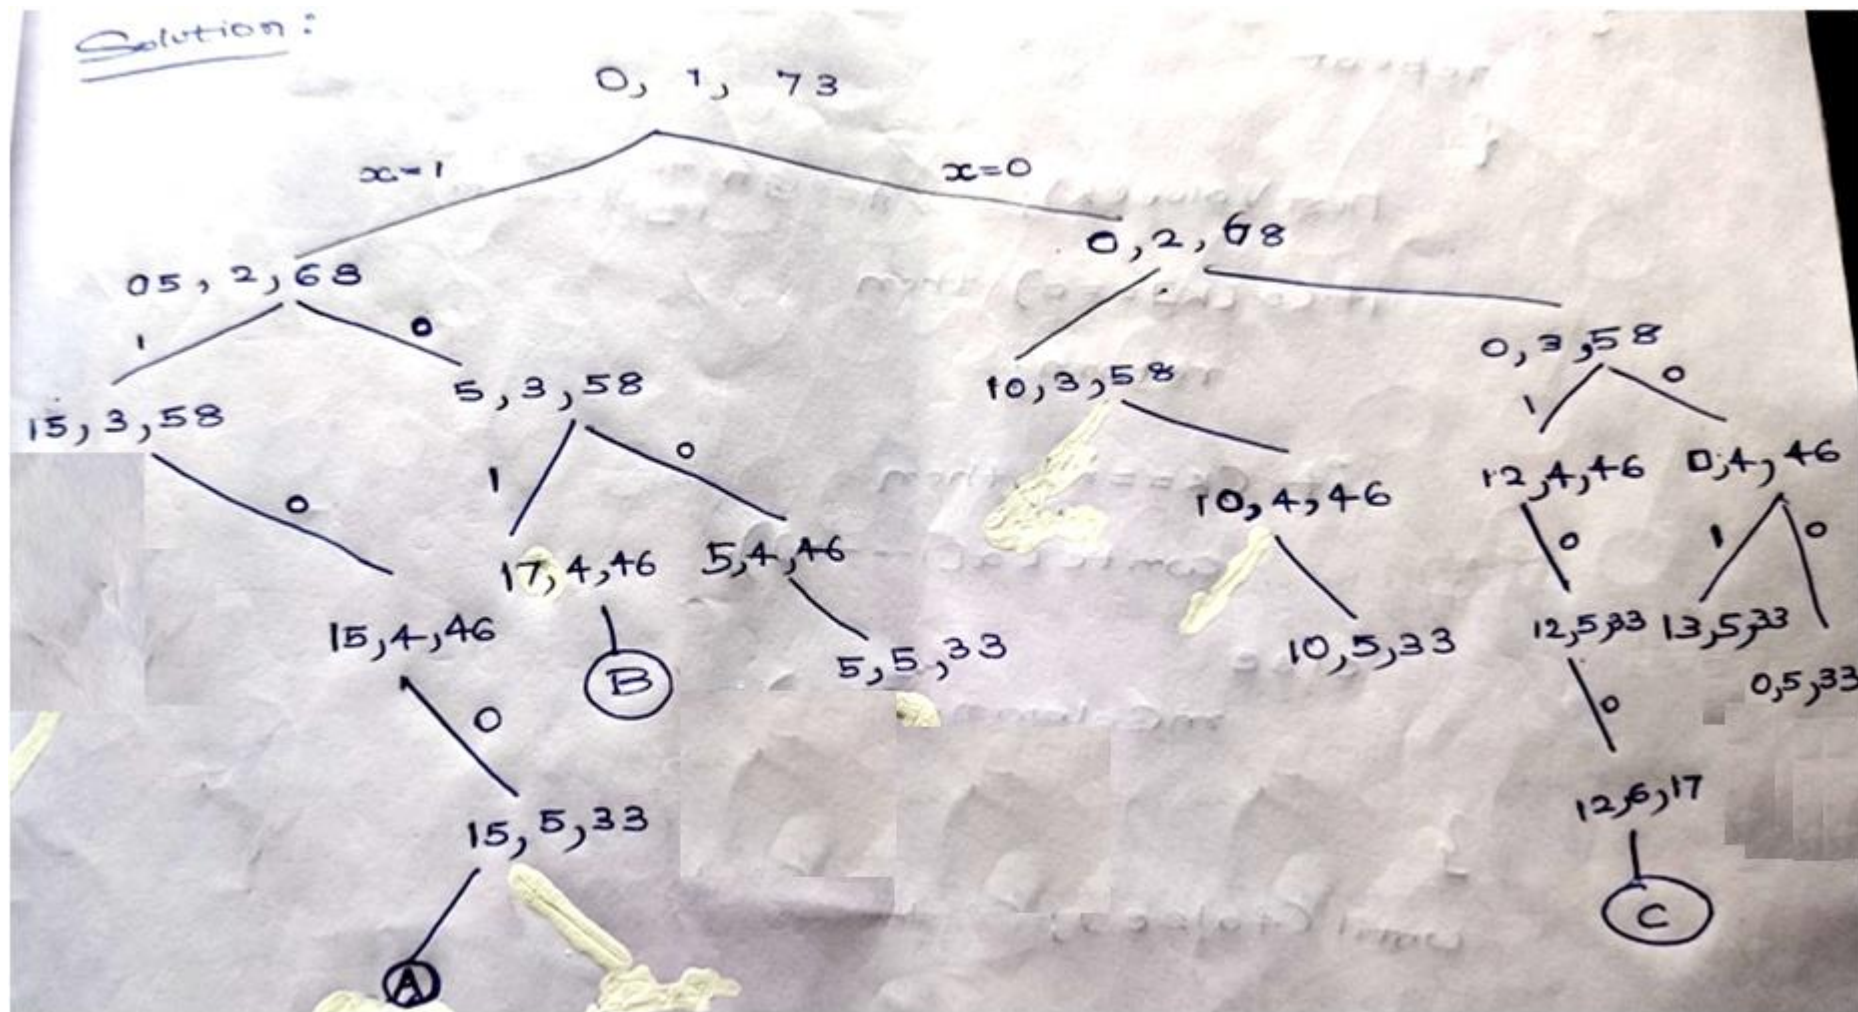 Solution:
0, 1, 73
x=1
x=0
0,2,68
05, 2, 68
1
0
0,3,58
15,3,58
5,3,58
10,3,58
1
0
0
1
0
12,4,46
0,4,46
10,4,46
17,4,46
5,4,46
0
1
0
15,4,46
B
5,5,33
10,5,33
12,5,33
13,5,33
0,5,33
0
0
15,5,33
12,6,17
A
C